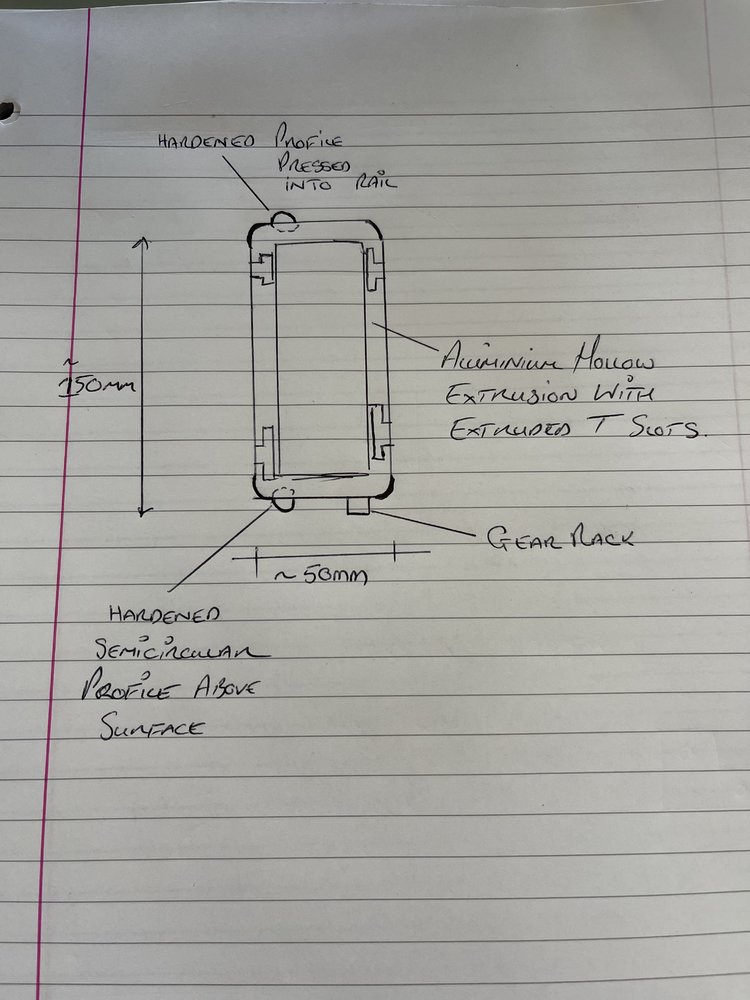 HARDENED PROFILE
PRESSED
INTO RAIL
~
150mm
ALUMINIUM HOLLOW
EXTRUSION WITH
EXTRUDED T SLOTS.
GEAR RACK
~50mm
HARDENED
SEMICIRCULAR
PROFILE ABOVE
SURFACE